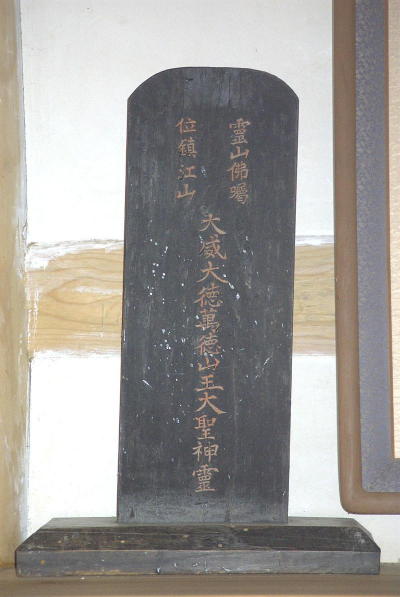 靈山佛囑
位鎮江山
大威大德萬德山王大聖神靈